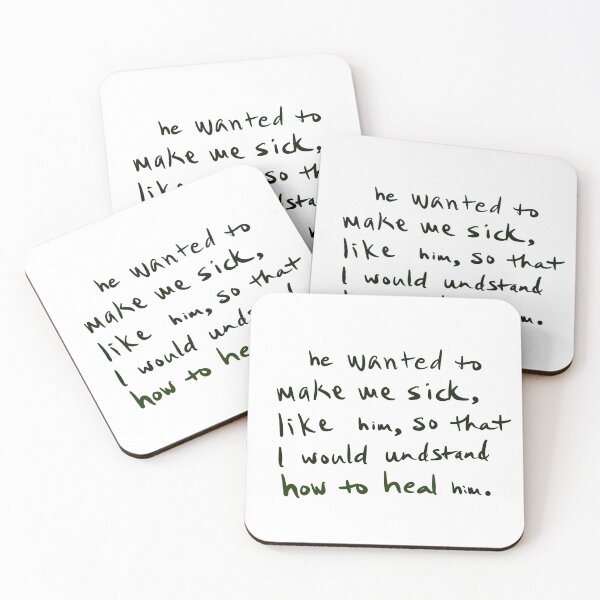 he wanted to
make me sick,
like so
he wanted to
make me sick,
like him, so that
I would undstand
him.
he wanted to
make me sick,
like him, so that
I would
how to
he wanted to
make me sick,
like him, so that
I would undstand
how to heal him.